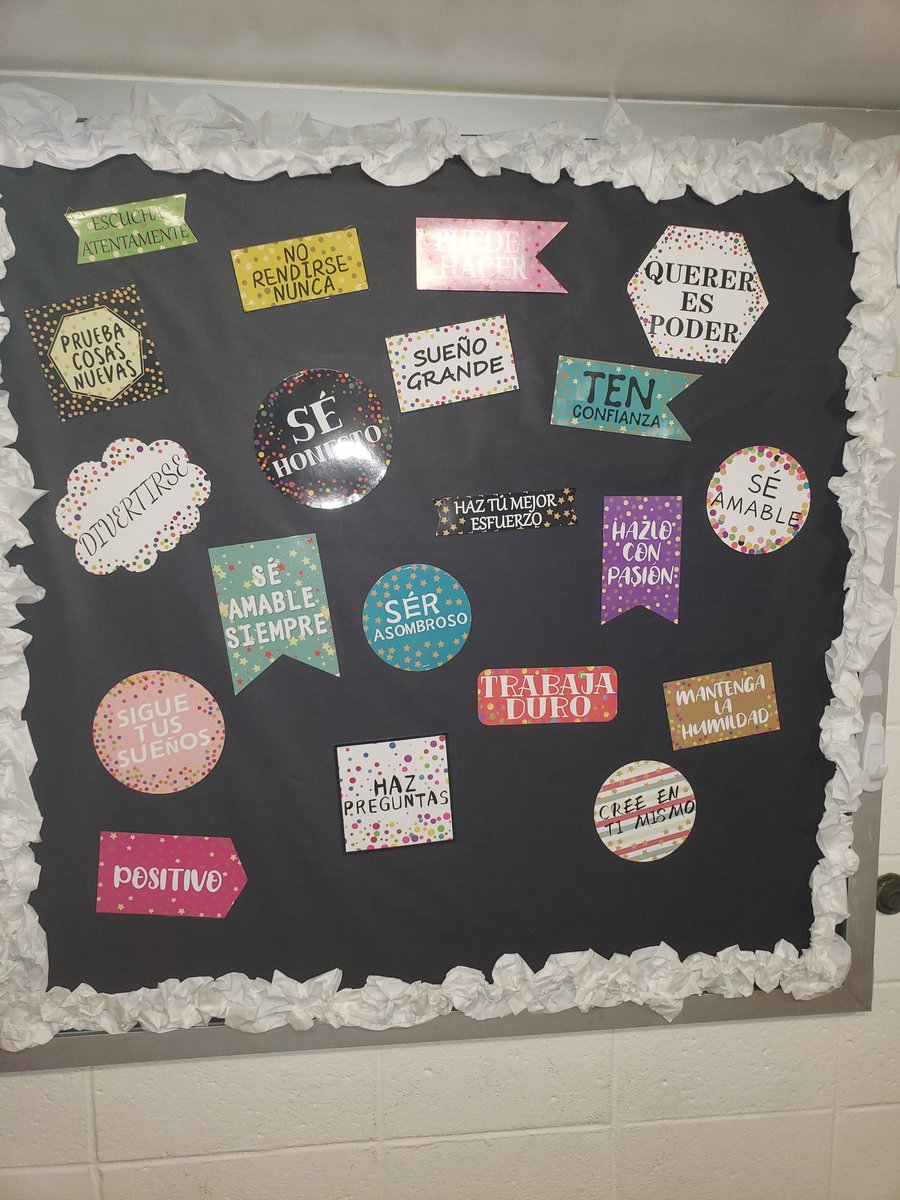 ESCUCHA
ATENTAMENTE
NO
RENDIRSE
NUNCA
PUEDE
HACER
QUERER
ES
PODER
PRUEBA
COSAS
NUEVAS
SUEÑO
GRANDE
TEN
CONFIANZA
SÉ
HONESTO
DIVERTIRSE
HAZ TÚ MEJOR
ESFUERZO
SÉ
AMABLE
HAZLO
CON
PASIÓN
SÉ
AMABLE
SIEMPRE
SÉR
ASOMBROSO
SIGUE
TUS
SUEÑOS
TRABAJA
DURO
MANTENGA
LA
HUMILDAD
HAZ
PREGUNTAS
CREE EN
TI MISMO
POSITIVO